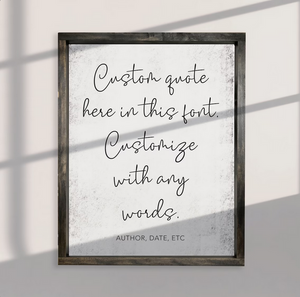 Custom quote
here in this font.
Customize
with any
words.
AUTHOR, DATE, ETC